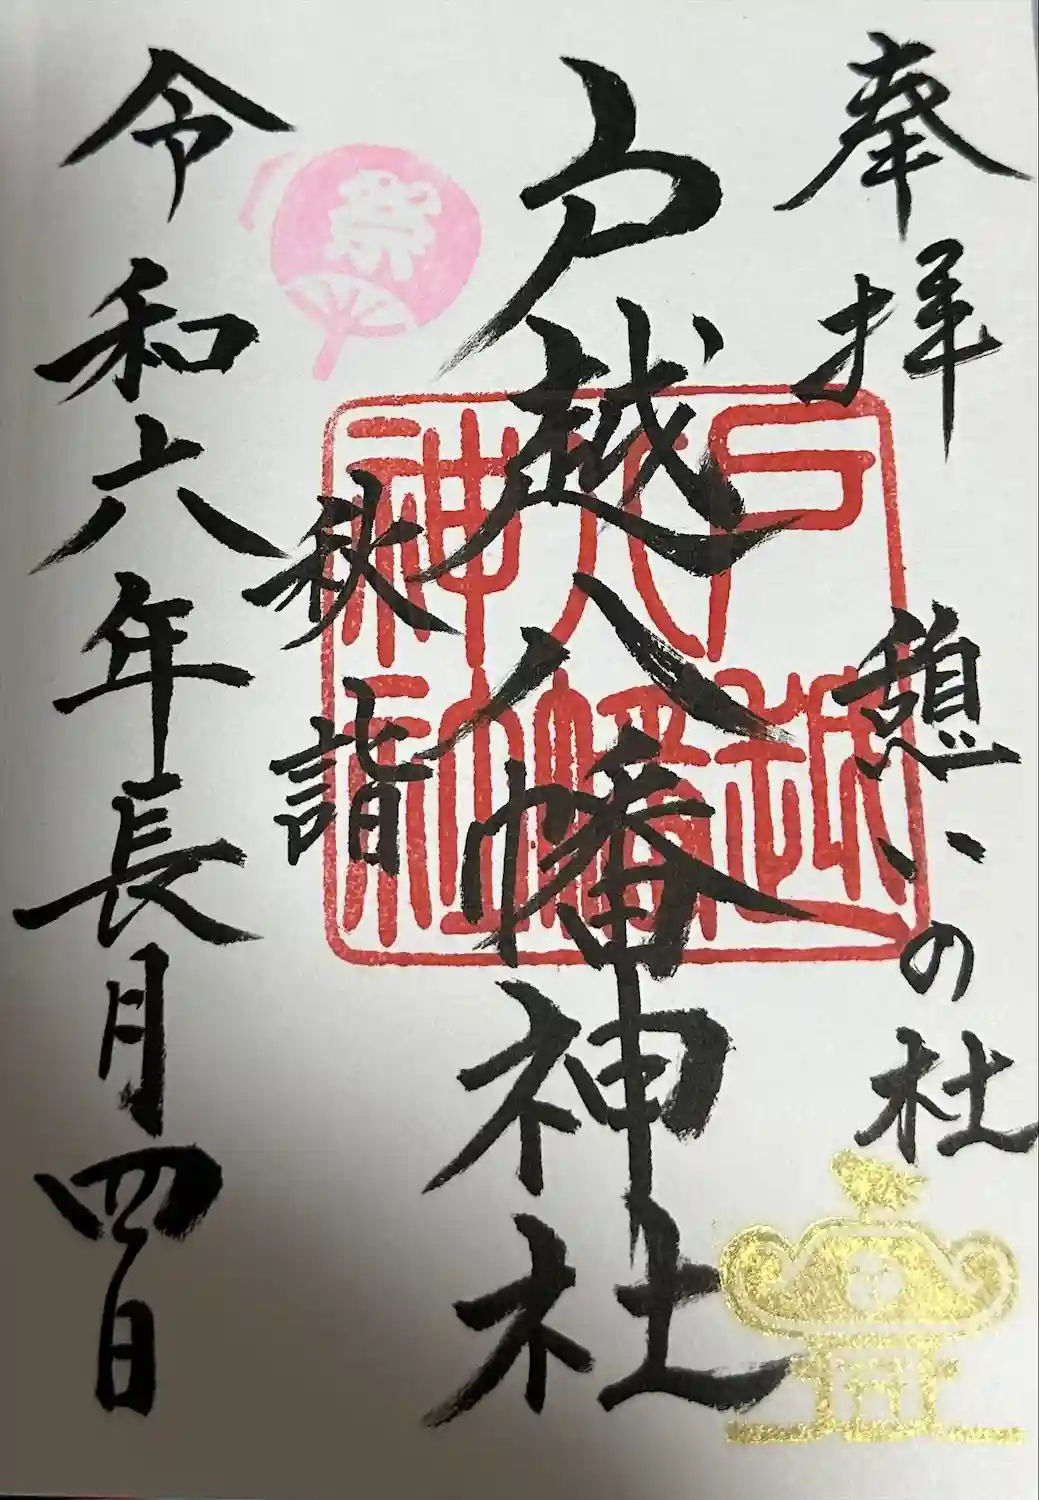 奉拝
憩いの杜
戸越八幡神社
戸越
八幡
神社
祭
秋詣
令和六年長月四日